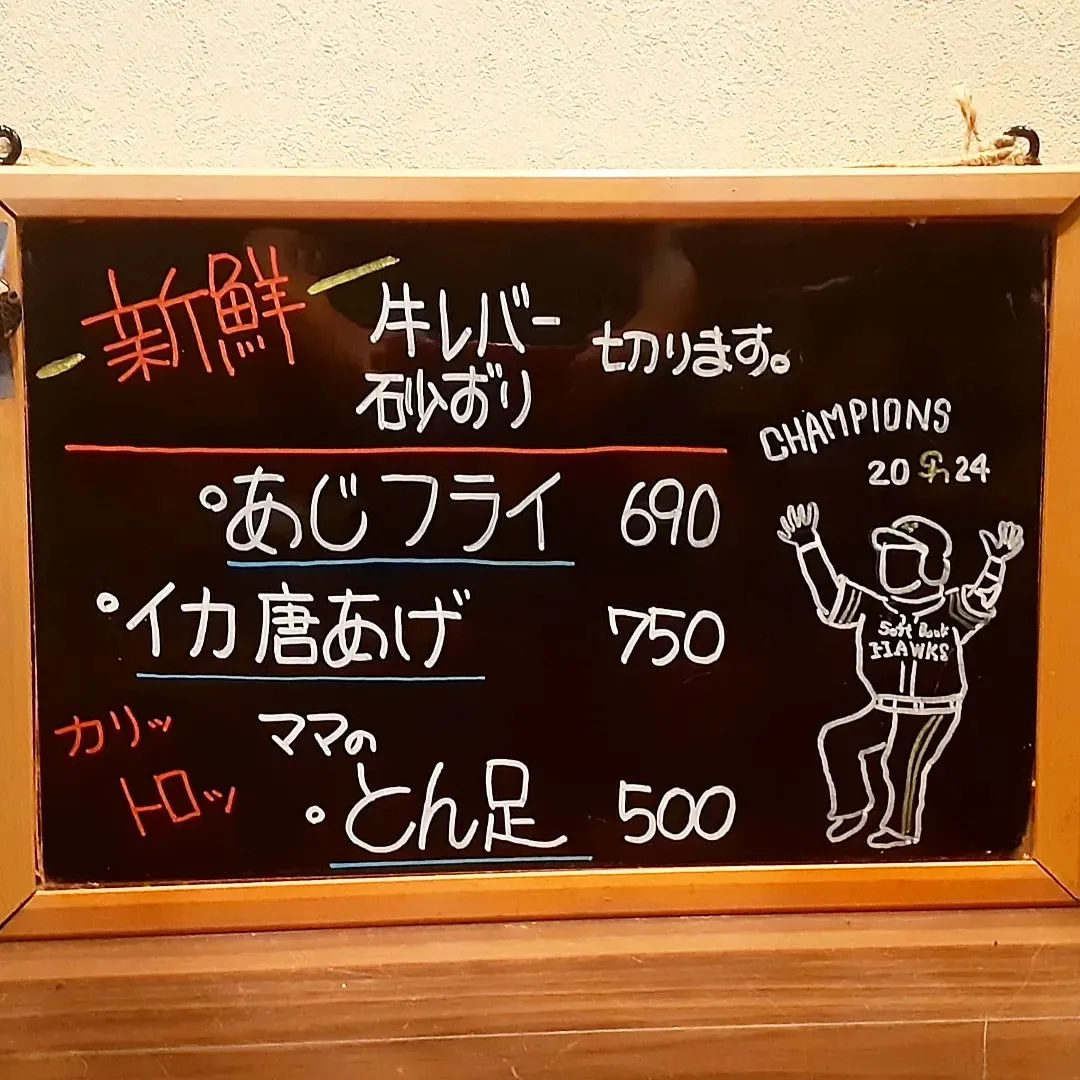 新鮮
牛レバー
砂ずり
切ります。
CHAMPIONS
20 SH 24
あじフライ 690
イカ唐あげ 750
Soft Bank
HAWKS
カリッ
トロッ
ママの
とん足 500